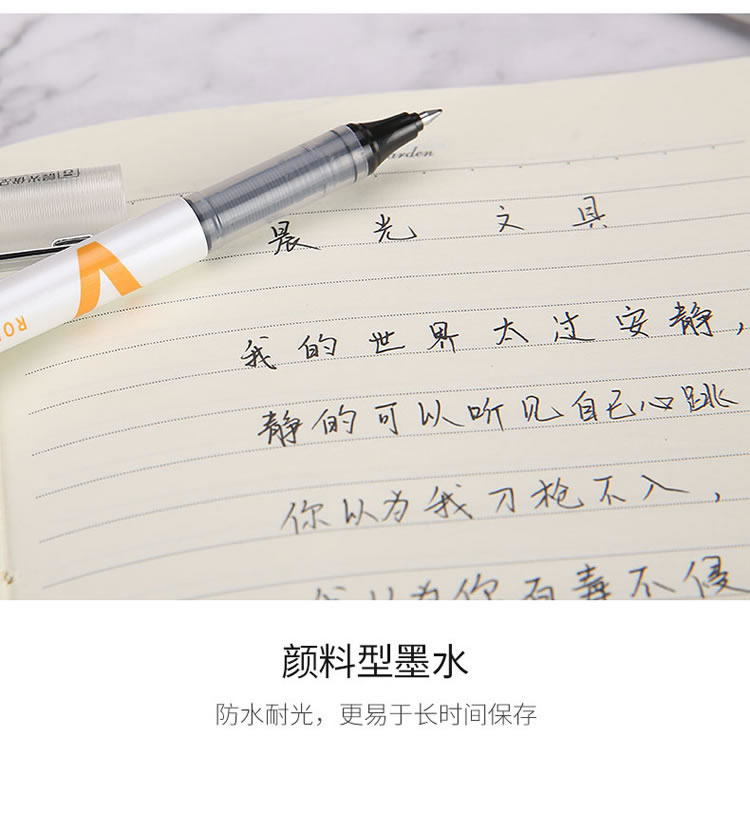 arden
晨光文具
我的世界太过安静，
静的可以听见自己心跳
你以为我刀枪不入，
我以为你百毒不侵
ROL
颜料型墨水
防水耐光，更易于长时间保存